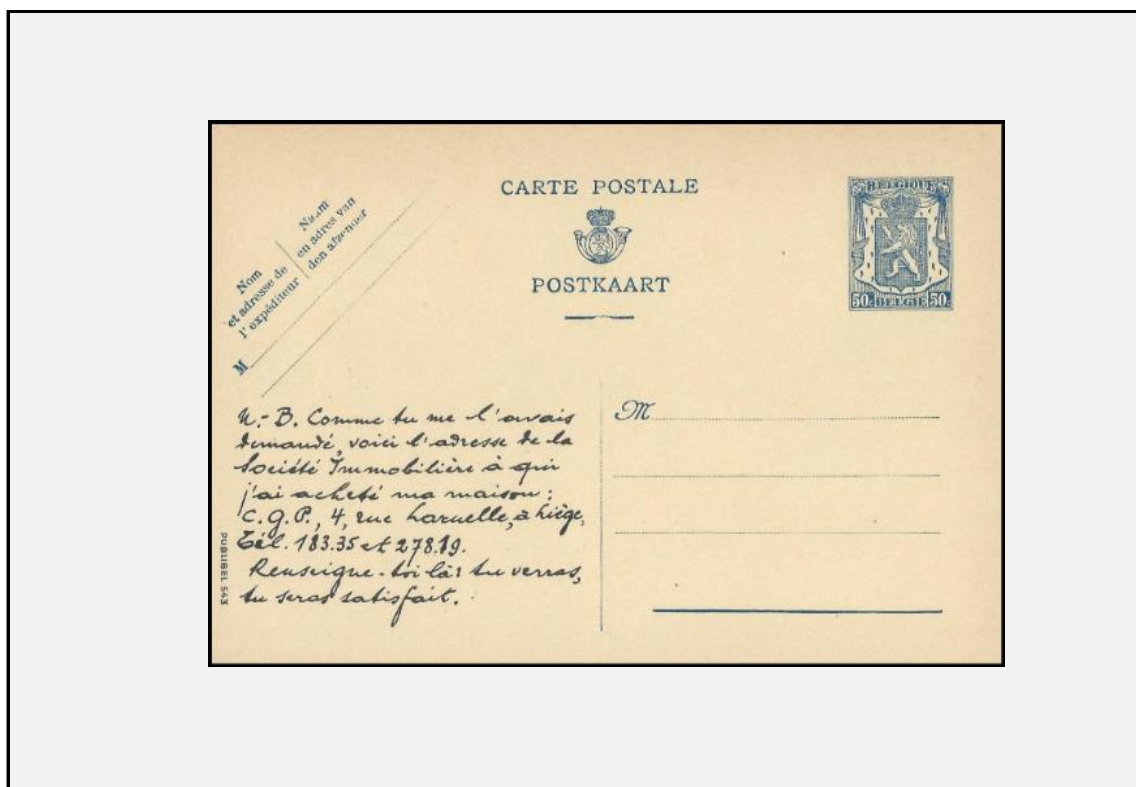 CARTE POSTALE
POSTKAART
BELGIQUE
50c BELGIE 50c
Nom
et adresse de
l'expéditeur
Naam
en adres van
den afzender
M
N.-B. Comme tu me l'avais
demandé, voici l'adresse de la
Société Immobilière à qui
j'ai acheté ma maison :
C.G.P., 4, rue Laruelle, à Liège,
Tél. 183.35 et 278.19.
Renseigne-toi là : tu verras,
tu seras satisfait.
M
PUBLIBEL 543